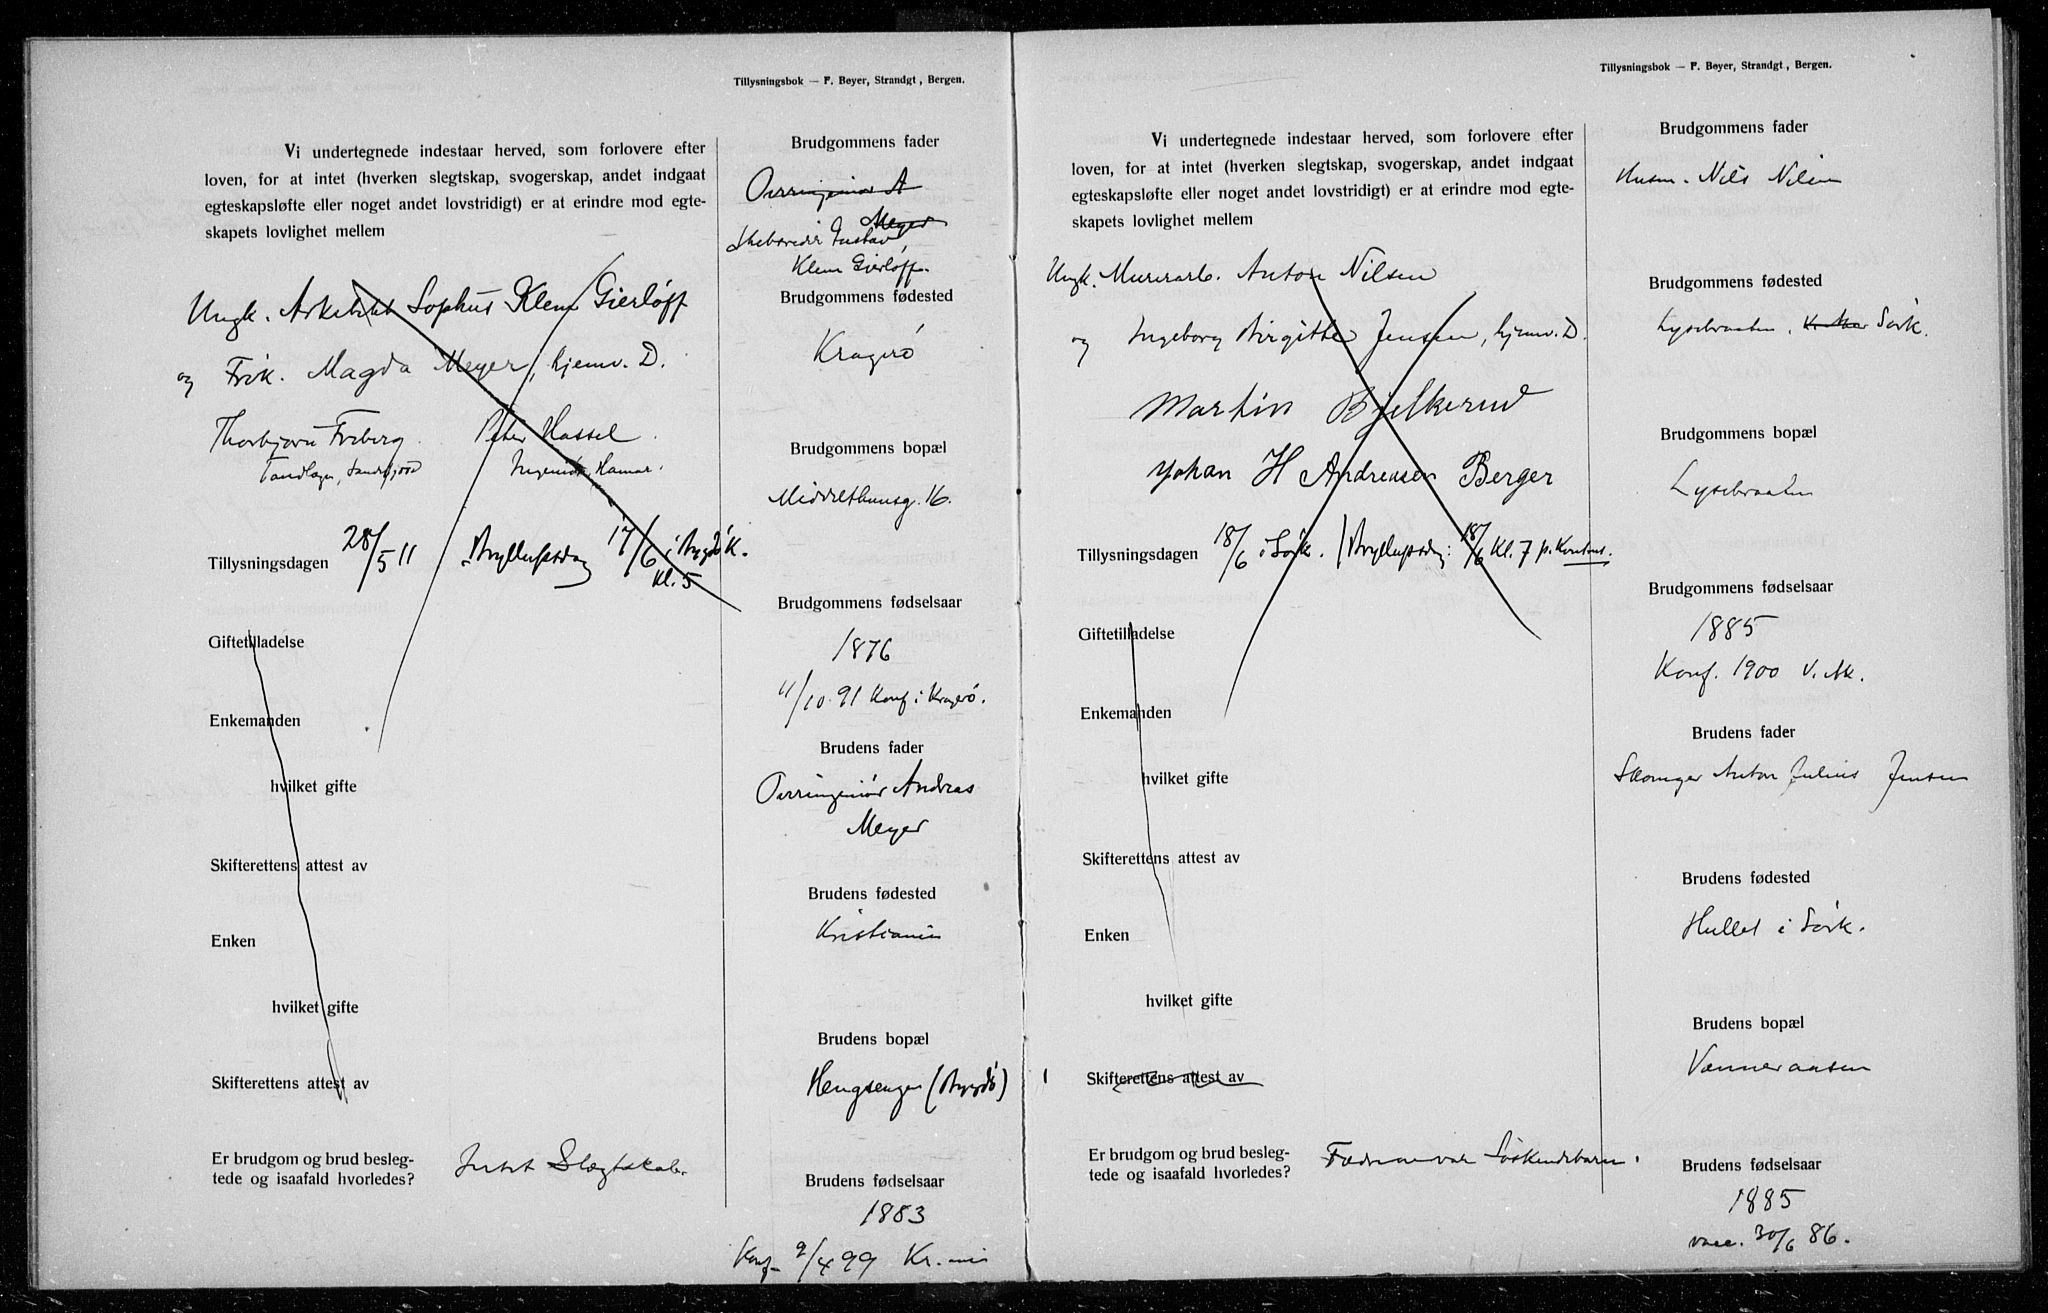 Tillysningsbok — F. Beyer, Strandgt., Bergen.
Vi undertegnede indestaar herved, som forlovere efter
loven, for at intet (hverken slegtskap, svogerskap, andet indgaat
egteskapsløfte eller noget andet lovstridigt) er at erindre mod egte-
skapets lovlighet mellem
Ungk. Arkitekt Sophus Klem Gierløff
og Frøk. Magda Meyer, hjemv. D.
Thorbjørn Peter Hassel.
Ingeniør, Hamar.
Tillysningsdagen 28/5 11 Bryllupsdag 17/6 i Bygdø K.
Kl. 5
Giftetilladelse
Enkemanden
hvilket gifte
Skifterettens attest av
Enken
hvilket gifte
Skifterettens attest av
Er brudgom og brud besleg-
tede og isaafald hvorledes? Intet Slægtskab.
Brudgommens fader
Overingeniør A
Meyer
Gustav
Klem Gierløff.
Brudgommens fødested
Kragerø
Brudgommens bopæl
Middelthunsg. 16.
Brudgommens fødselsaar
1876
11/10. 91 Konf i Kragerø.
Brudens fader
Overingeniør Andreas
Meyer
Brudens fødested
Kristiania
Brudens bopæl
Hengsenger (Bygdø)
Brudens fødselsaar
1883
Konf. 9/4 99 Kr.ania
Tillysningsbok — F. Beyer, Strandgt., Bergen.
Vi undertegnede indestaar herved, som forlovere efter
loven, for at intet (hverken slegtskap, svogerskap, andet indgaat
egteskapsløfte eller noget andet lovstridigt) er at erindre mod egte-
skapets lovlighet mellem
Ungk. Murerarb. Anton Nilsen
og Ingeborg Birgitte Jensen, hjemv. D.
Martin Bjelkerud
Johan H Andreasen Berger
Tillysningsdagen 18/6 i Sørk. Bryllupsdag: 18/6 Kl. 7 p. Kontoret.
Giftetilladelse
Enkemanden
hvilket gifte
Skifterettens attest av
Enken
hvilket gifte
Skifterettens attest av
Er brudgom og brud besleg-
tede og isaafald hvorledes? Fædrene var Søskendebarn.
Brudgommens fader
Husm. Nils Nilsen
Brudgommens fødested
Lysebraaten, Sørk.
Brudgommens bopæl
Lysebraaten
Brudgommens fødselsaar
1885
Konf. 1900 V. Ak.
Brudens fader
Skomager Anton Julius Jensen
Brudens fødested
Hullet i Sørk.
Brudens bopæl
Vænneraasen
Brudens fødselsaar
1885
vacc. 30/6 86.